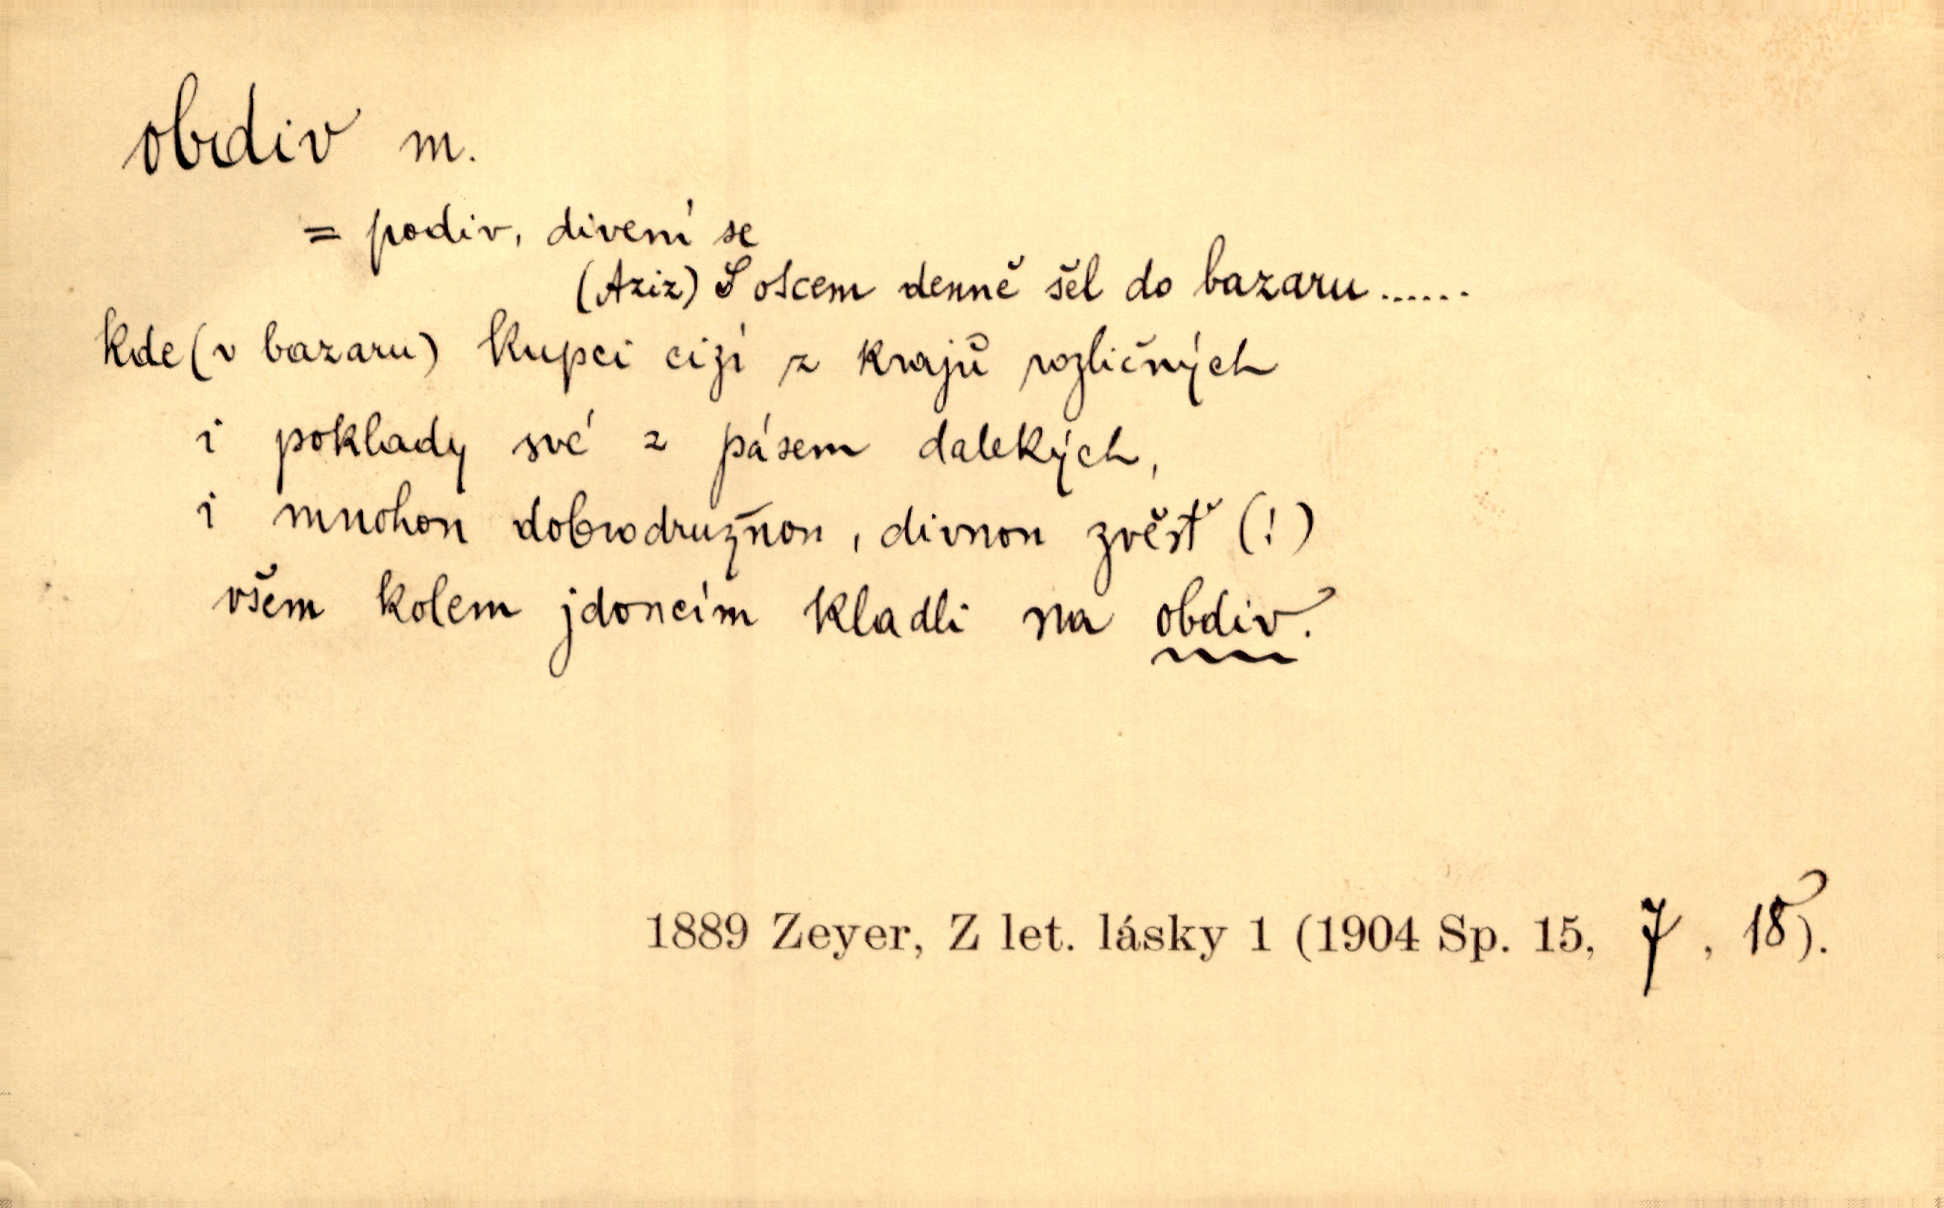 obdiv m.
= podiv, divení se
(Aziz) S otcem denně šel do bazaru......
kde (v bazaru) kupci cizí z krajů rozličných
i poklady své z pásem dalekých,
i mnohou dobrodružnou, divnou zvěsť (!)
všem kolem jdoucím kladli na obdiv.
1889 Zeyer, Z let. lásky 1 (1904 Sp. 15, 7, 18).